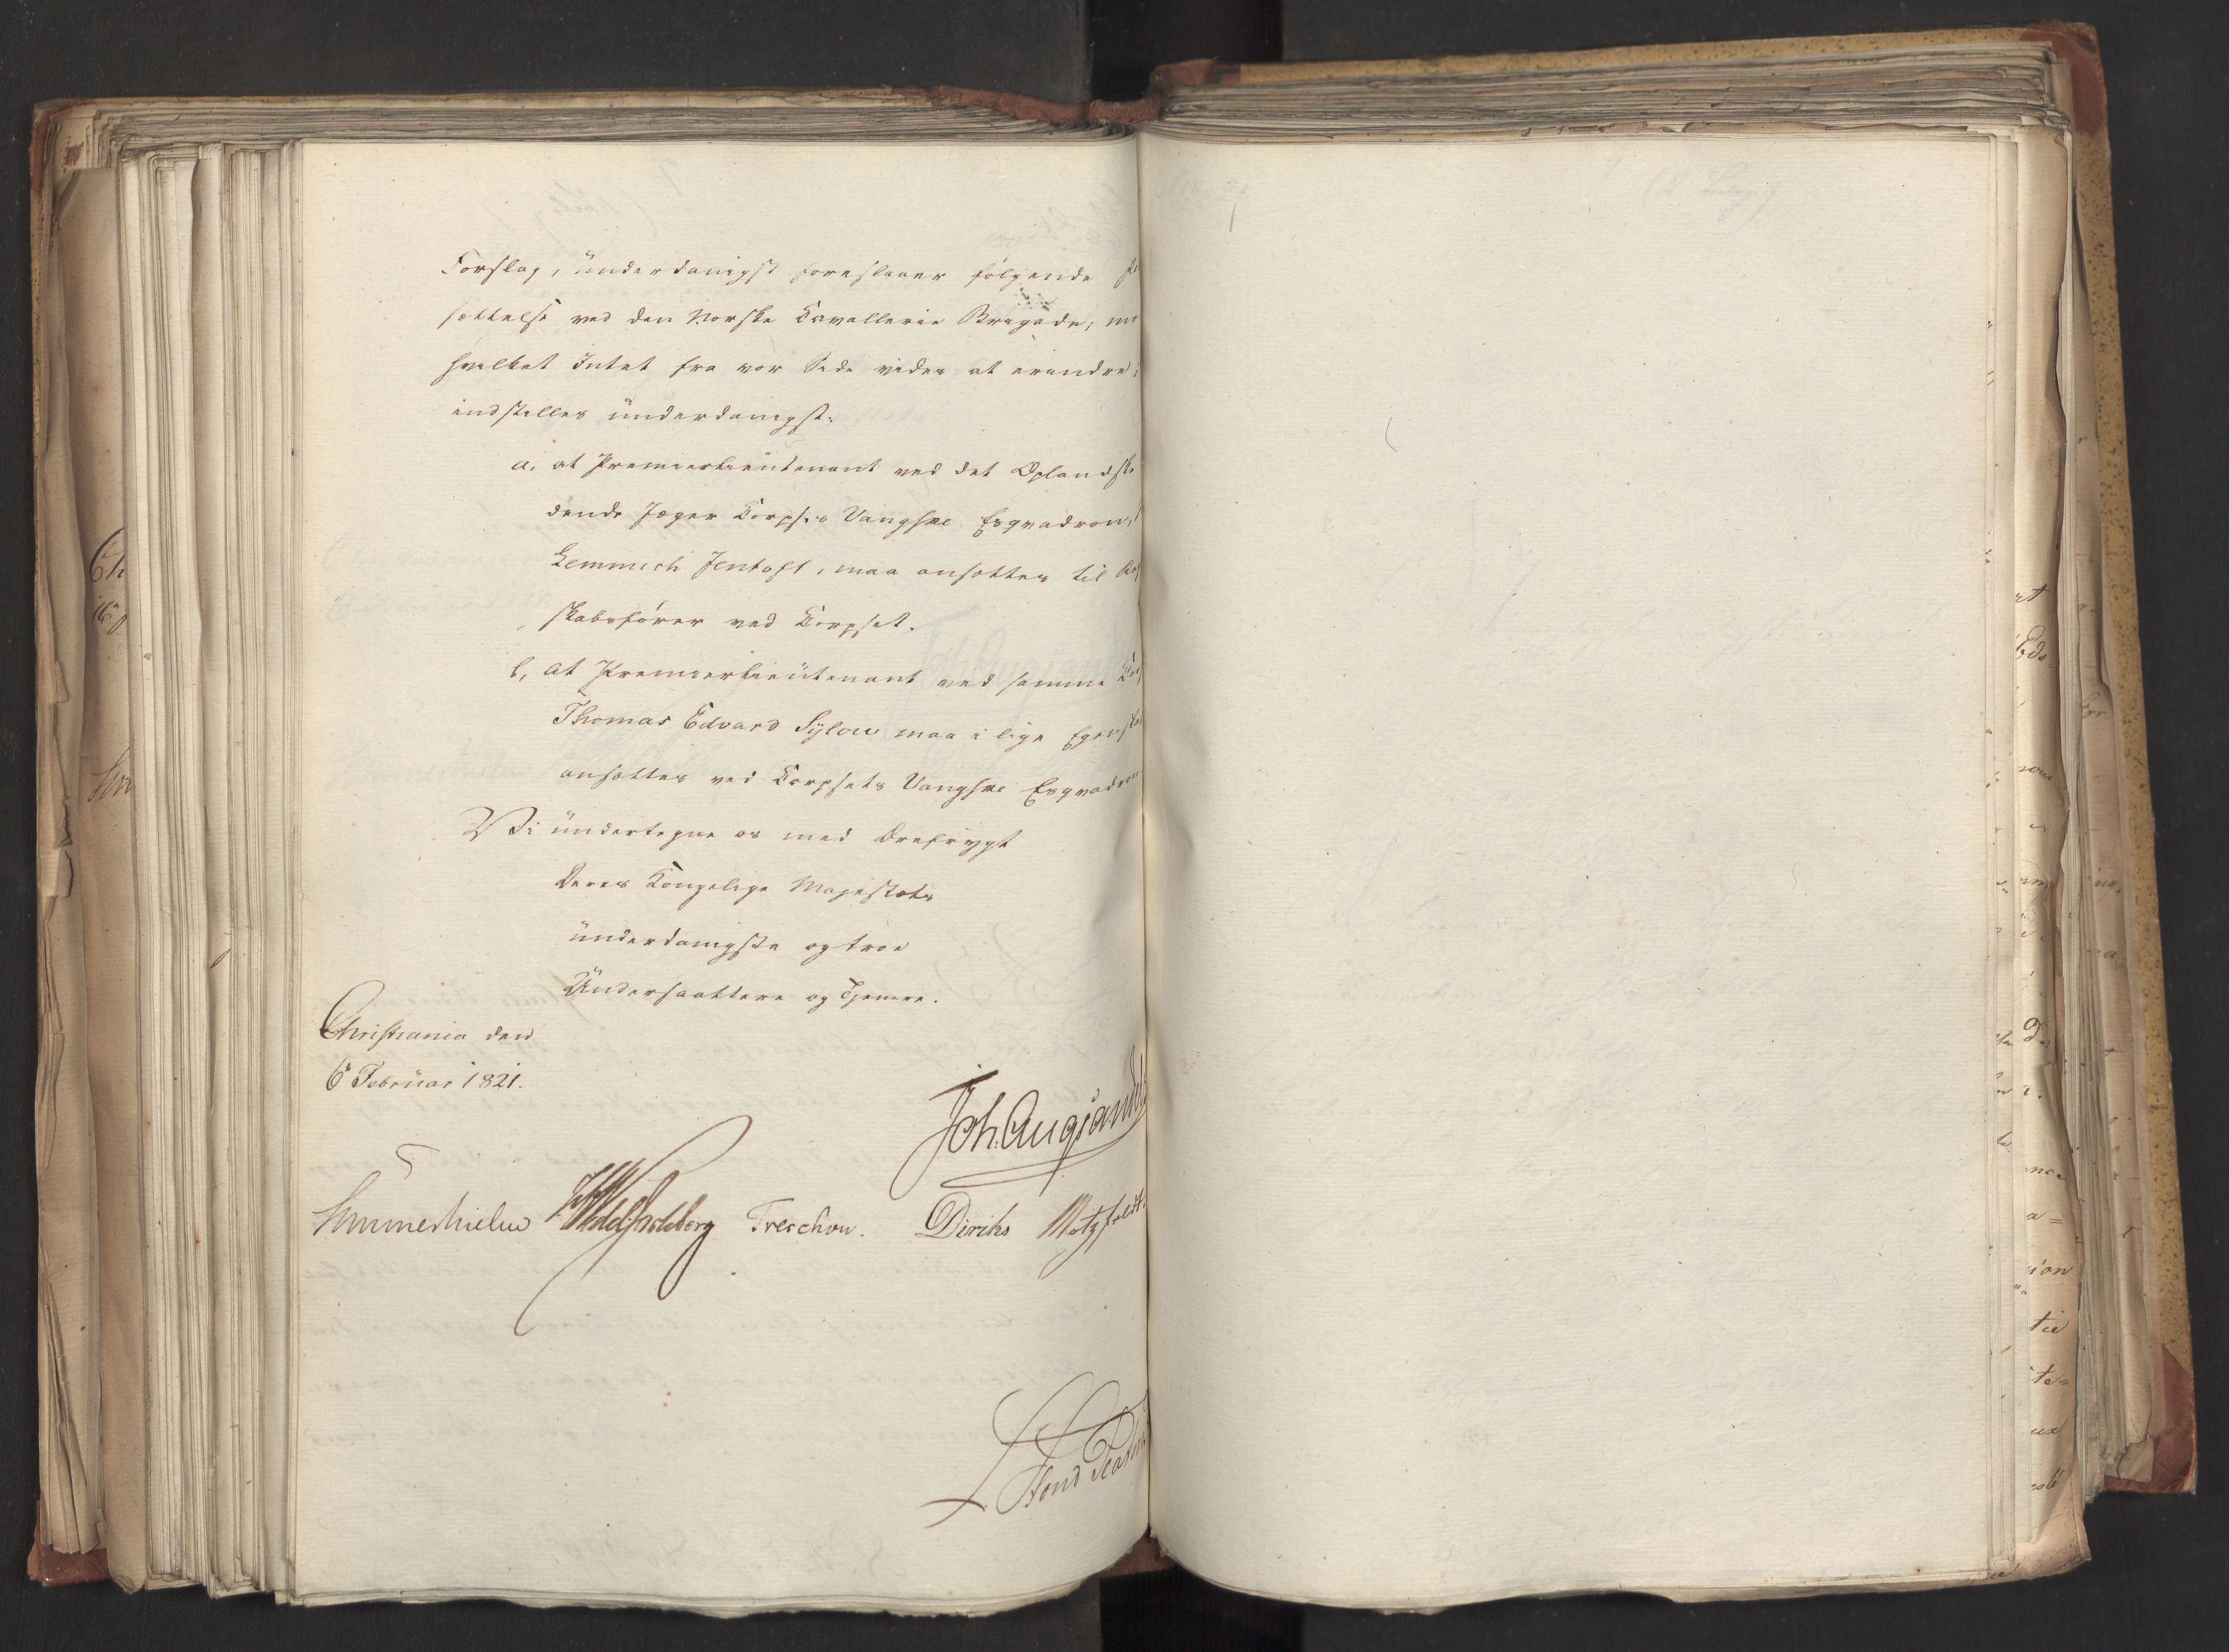 Forslag, ünderdanigst foreslaaer følgende
sættelse ved den Norske Cavallerie Brigade;
hvilket Intet fra vor Side vides at erindre;
indstilles ünderdanigst:
a, at Premierlieütenant ved det Oplandske
dende Jæger Corpses Vangske Esqvadron,
Lemmich Jentoft, maa ansættes til
skabsfører ved Corpset.
b, at Premierlieütenant ved samme
Thomas Edvard Sÿlow maa i lige
ansættes ved Corpsets Vangske Esqvadron
Vi ündertegne os med Ærefrygt
Deres Kongelige Majestæts
ünderdanigste og troe
Ündersaattere og Tjenere.
Christiania den
6 Februar 1821.
Joh. Aug Sande
Sommerhielm Treschow. Diriks Motzfeldt.